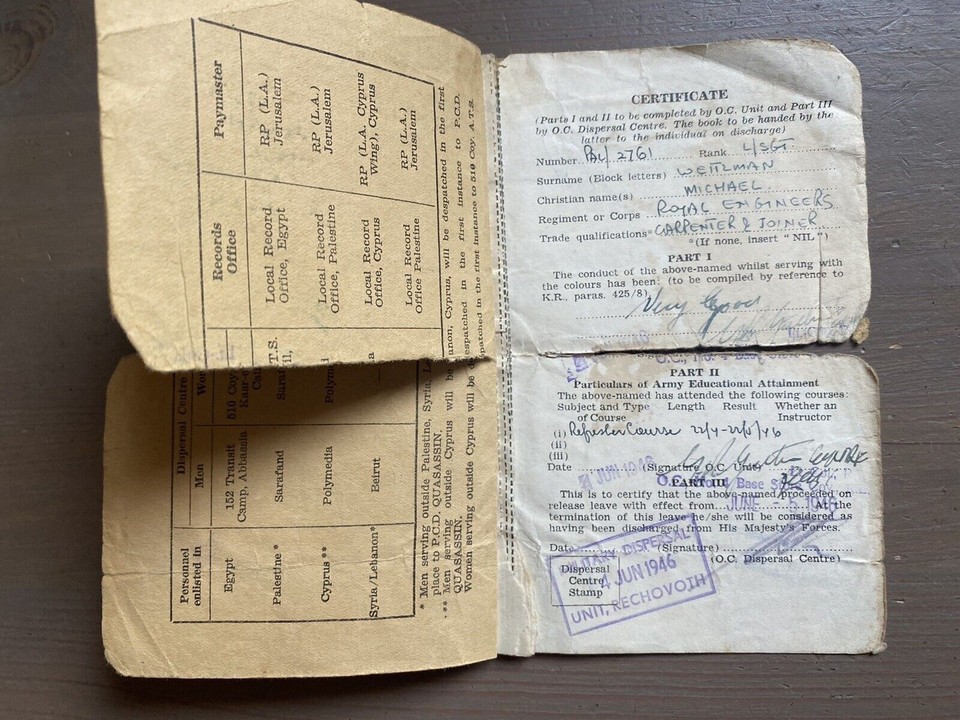 Personnel enlisted in
Dispersal Centre
Men
Records Office
Paymaster
Egypt
152 Transit Camp, Abbassia
510 Coy
Local Record Office, Egypt
RP (L.A.) Jerusalem
Palestine *
Sarafand
Local Record Office, Palestine
RP (L.A.) Jerusalem
Cyprus **
Polymedia
Local Record Office, Cyprus
RP (L.A. Cyprus Wing), Cyprus
Syria/Lebanon*
Beirut
Local Record Office Palestine
RP (L.A.) Jerusalem
* Men serving outside Palestine, Syria, Cyprus, will be despatched in the first
place to P.C.D, QUASASSIN.
** Men serving outside Cyprus will be despatched in the first instance to P.C.D.
QUASASSIN.
Women serving outside Cyprus will be despatched in the first instance to 510 Coy. A.T.S.
CERTIFICATE
(Parts I and II to be completed by O.C. Unit and Part III
by O.C. Dispersal Centre. The book to be handed by the
latter to the individual on discharge)
Number PAL/2761 Rank L/SGT
Surname (Block letters) WEITZMAN
Christian name(s) MICHAEL
Regiment or Corps ROYAL ENGINEERS
Trade qualifications* CARPENTER & JOINER
*(If none, insert "NIL")
PART I
The conduct of the above-named whilst serving with
the colours has been: (to be compiled by reference to
K.R., paras. 425/8)
Very Good
PART II
Particulars of Army Educational Attainment
The above-named has attended the following courses:
Subject and Type Length Result Whether an
of Course Instructor
(i) Refresher Course
(ii)
(iii)
Date (Signature O.C. Unit)
JUN 1946
Base
PART III
This is to certify that the above-named proceeded on
release leave with effect from JUNE 5 1946 At the
termination of this leave he/she will be considered as
having been discharged from His Majesty's Forces.
Date (Signature)
(O.C. Dispersal Centre)
Dispersal
Centre
Stamp
MILITARY DISPERSAL
4 JUN 1946
UNIT, RECHOVOTH